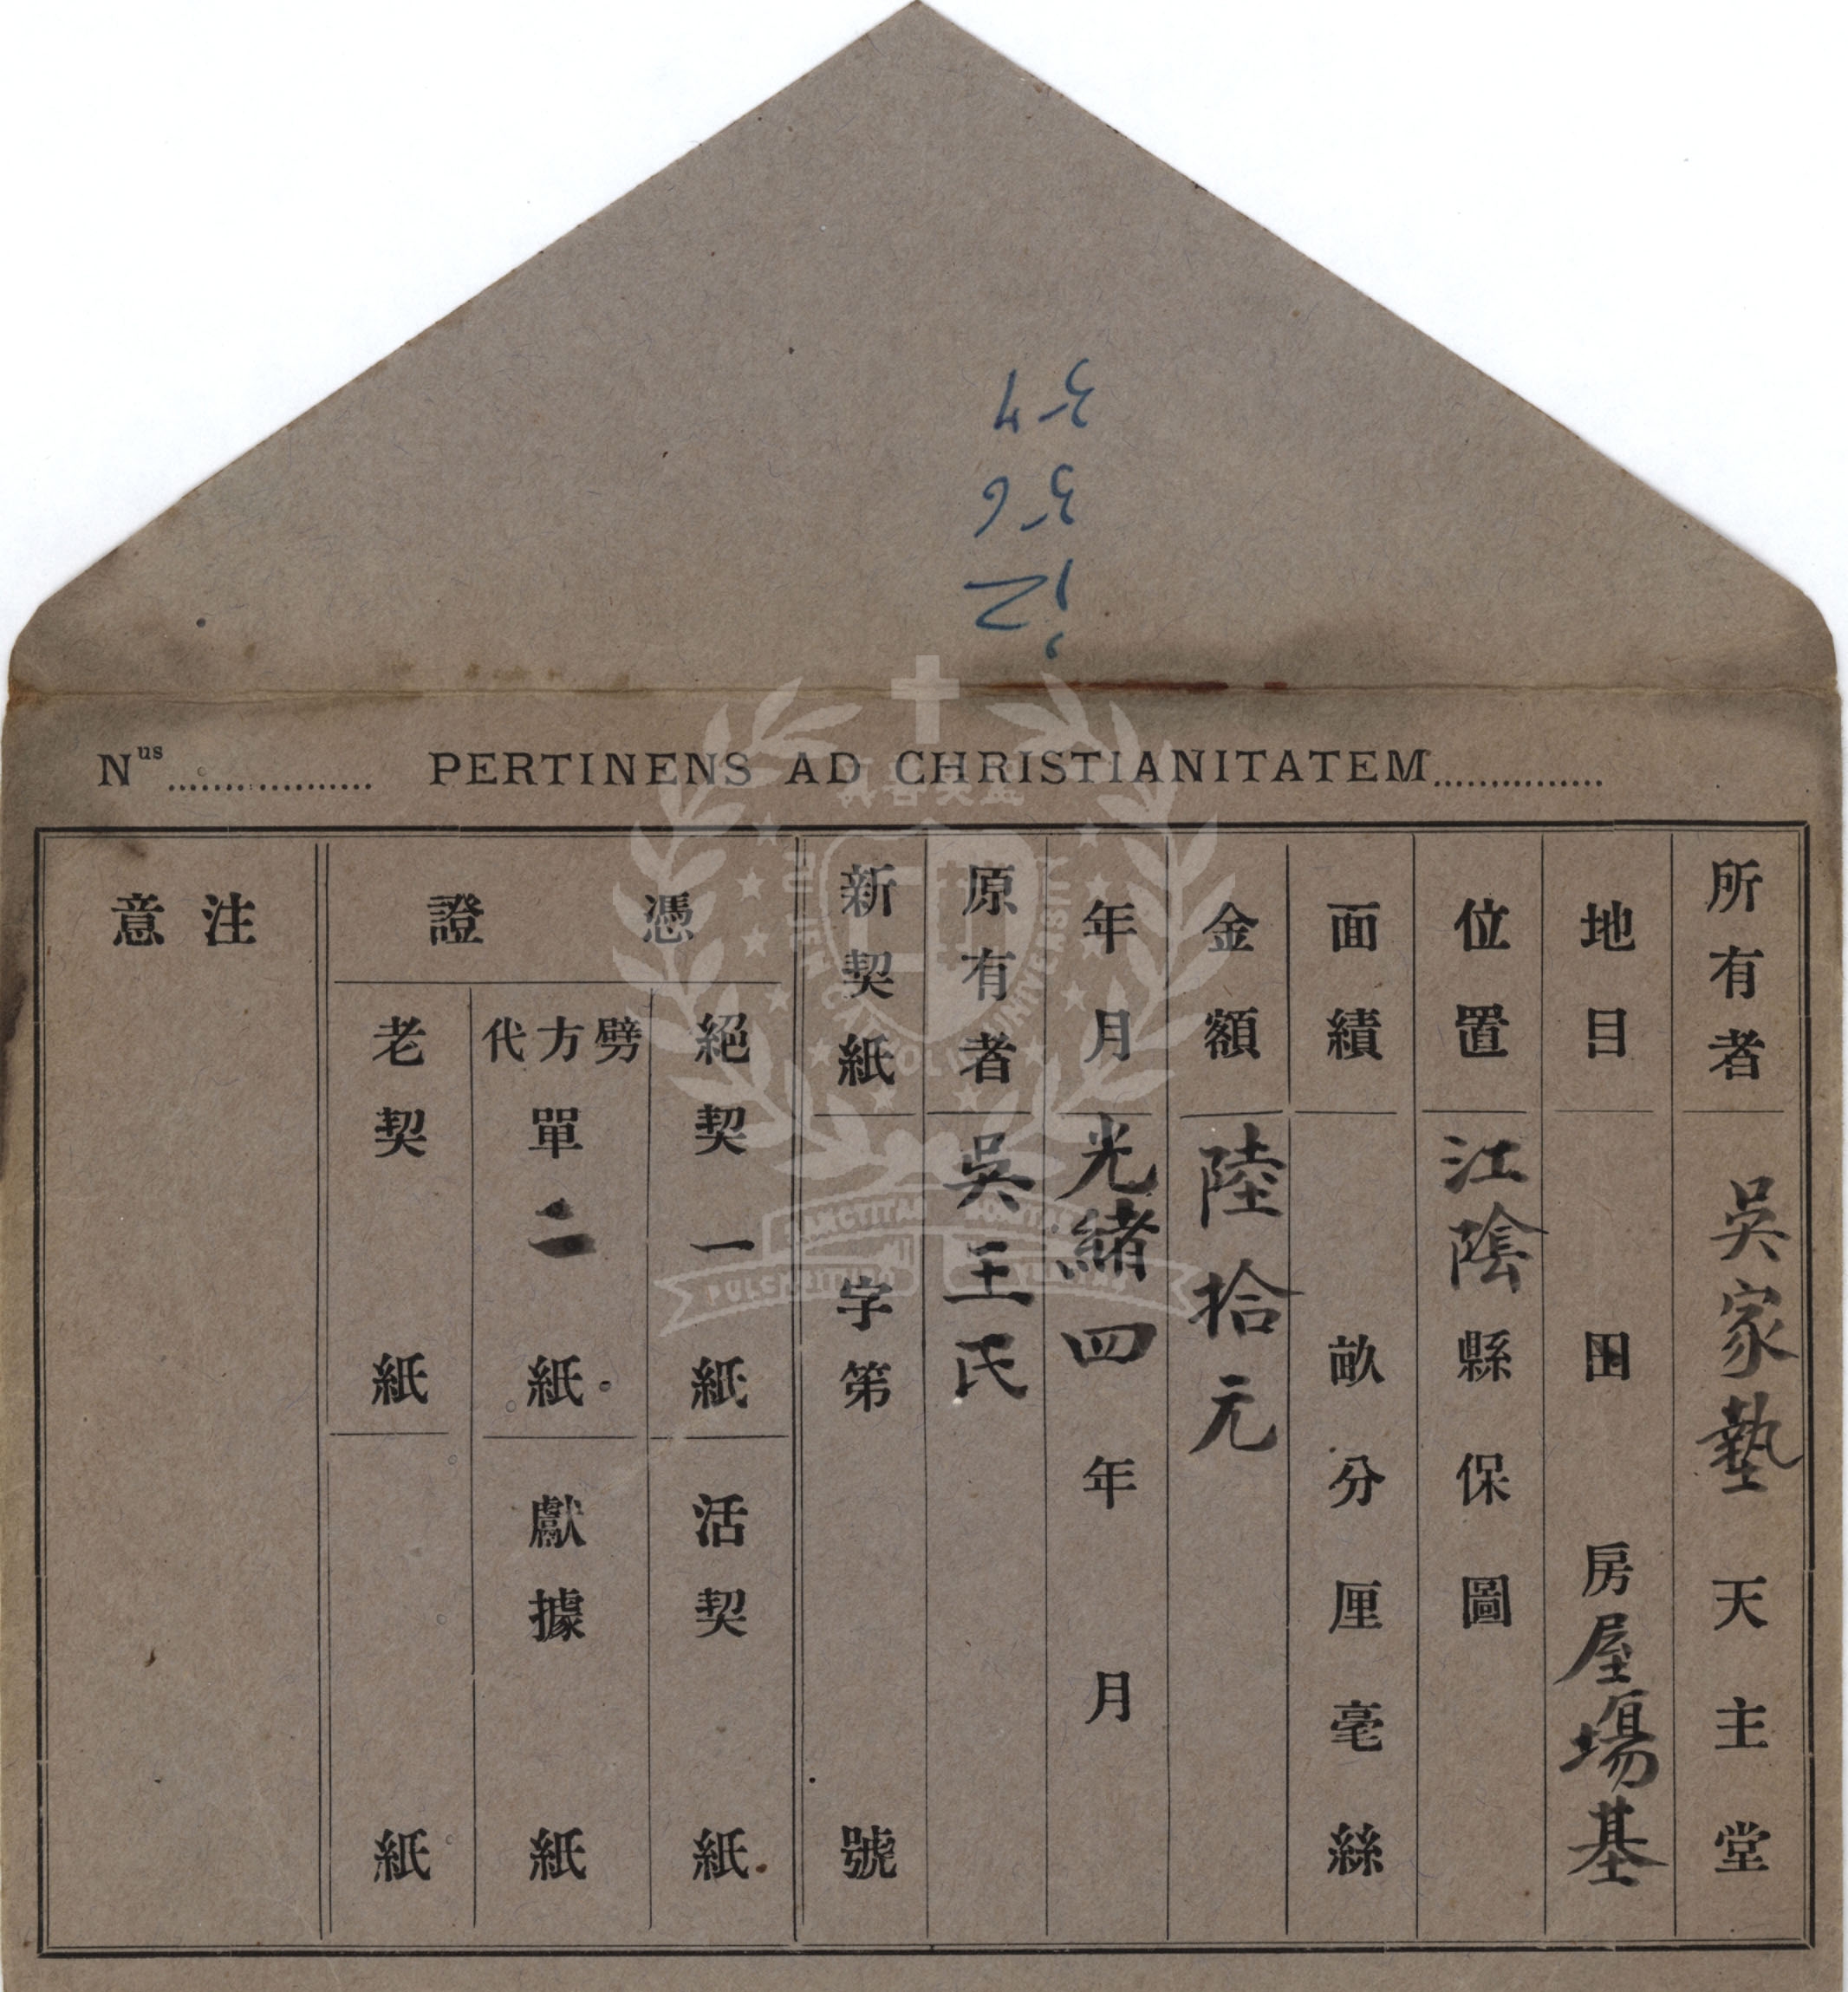 54
56
12
Nus.................... PERTINENS AD CHRISTIANITATEM...............
所有者 吳家墊天主堂
地目 田 房屋場基
位置 江陰縣保圖
面績 畝分厘毫絲
金額 陸拾元
年月 光緒四年月
原有者 吳王氏
新契紙 字第號
憑證
絕契一紙
活契紙
劈方代單二紙
獻據紙
老契紙
紙
注意
真善美聖
FU JEN CATHOLIC UNIVERSITY
SANCTITAS BONITAS
PULCHRITUDO VERITAS